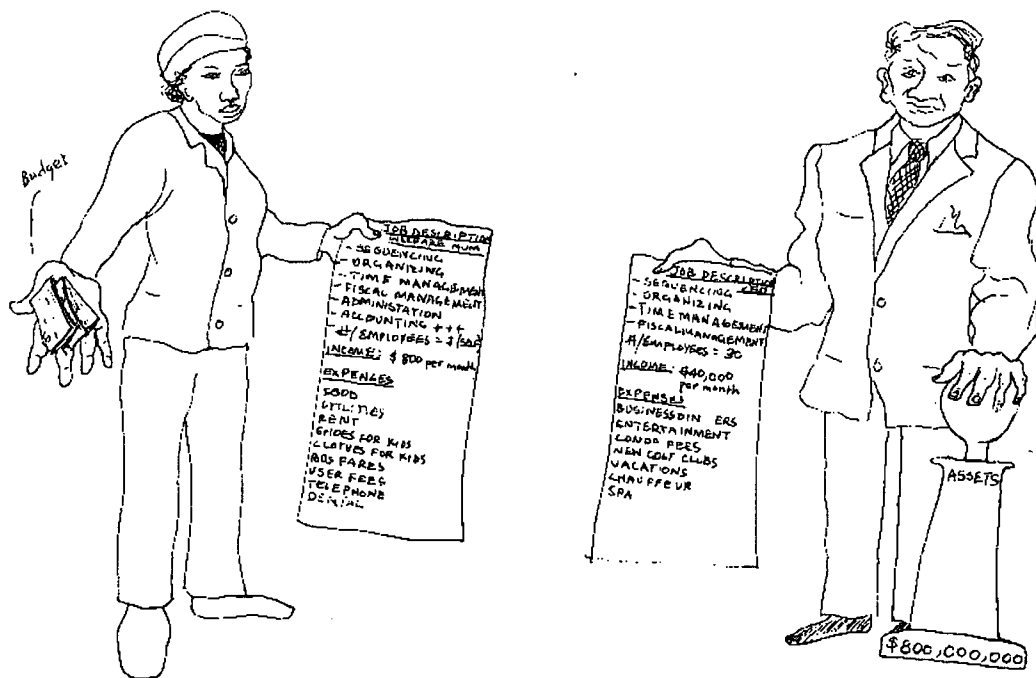 Budget
JOB DESCRIPTION
WELFARE MUM
- SEQUENCING
- ORGANIZING
- TIME MANAGEMENT
- FISCAL MANAGEMENT
- ADMINISTATION
- ACCOUNTING +++
- #/EMPLOYEES =
INCOME: $800 per month
EXPENCES
FOOD
UTILITIES
RENT
FOR KIDS
CLOTHES FOR KIDS
BUS FARES
USER FEES
TELEPHONE
DENTAL
JOB DESCRIPTION
CEO
- SEQUENCING
- ORGANIZING
- TIME MANAGEMENT
- FISCAL MANAGEMENT
#/EMPLOYEES = 30
INCOME: $40,000
per month
EXPENSES
BUSINESS DIN ERS
ENTERTAINMENT
CONDO FEES
NEW GOLF CLUBS
VACATIONS
CHAUFFEUR
SPA
ASSETS
$800,000,000